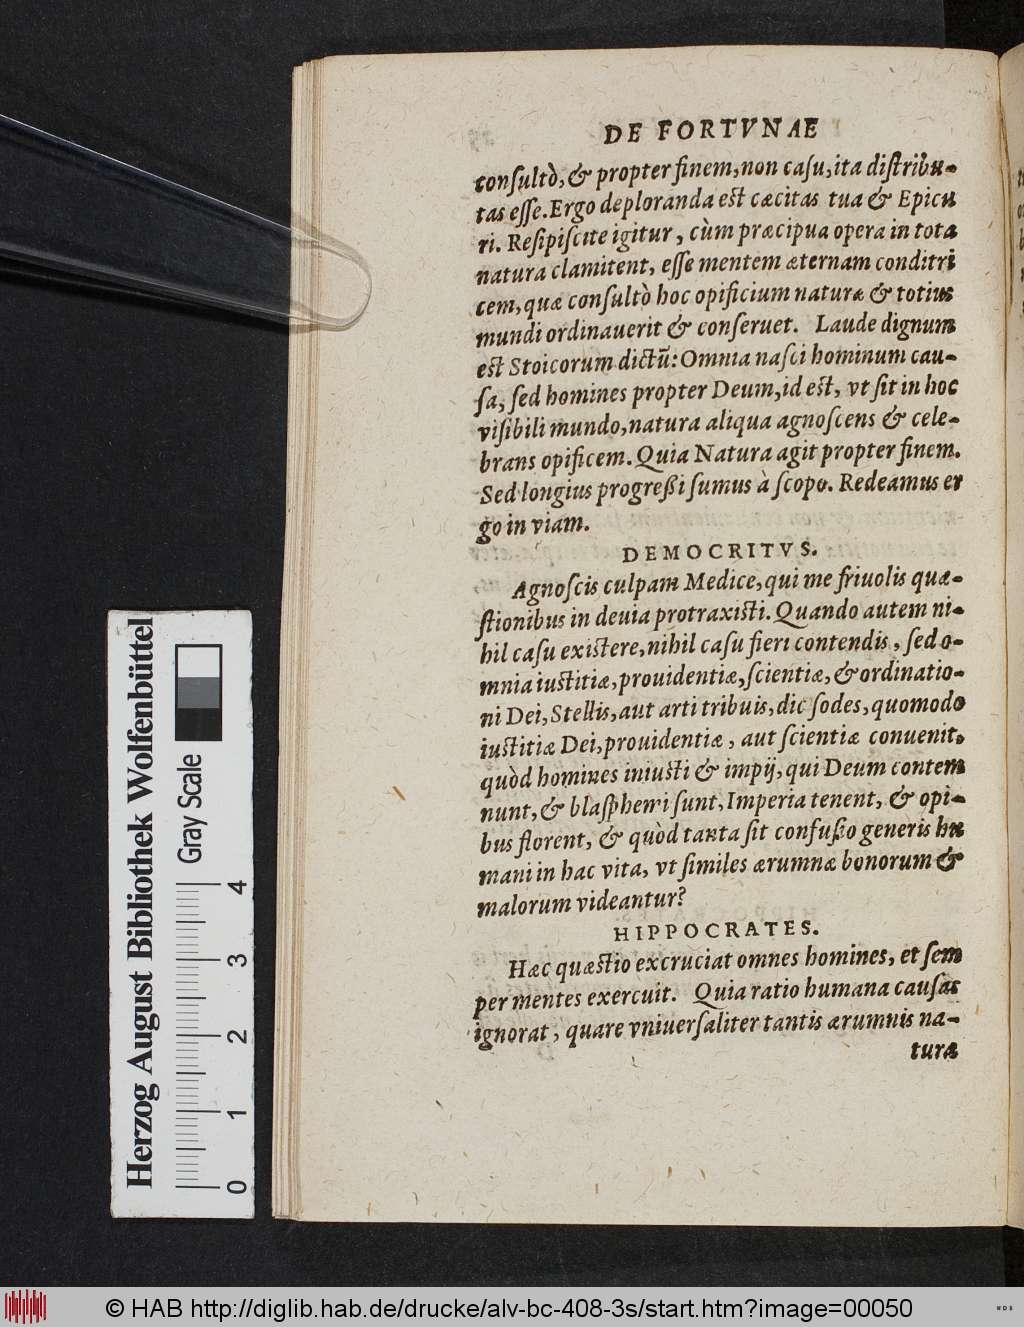 DE FORTVNAE
conſultò, & propter finem, non caſu, ita diſtribu-
tas eſſe. Ergo deploranda eſt cæcitas tua & Epicu
ri. Reſipiſcite igitur, cùm præcipua opera in tota
natura clamitent, eſſe mentem æternam conditri
cem, quæ conſultò hoc opificium naturæ & totius
mundi ordinauerit & conſeruet. Laude dignum
eſt Stoicorum dictũ: Omnia naſci hominum cau-
ſa, ſed homines propter Deum, id eſt, vt ſit in hoc
viſibili mundo, natura aliqua agnoſcens & cele-
brans opificem. Quia Natura agit propter finem.
Sed longius progreßi ſumus à ſcopo. Redeamus er
go in viam.
DEMOCRITVS.
Agnoſcis culpam Medice, qui me friuolis quæ-
ſtionibus in deuia protraxiſti. Quando autem ni-
hil caſu exiſtere, nihil caſu fieri contendis, ſed o-
mnia iuſtitiæ, prouidentiæ, ſcientiæ, & ordinatio-
ni Dei, Stellis, aut arti tribuis, dic ſodes, quomodo
iuſtitiæ Dei, prouidentiæ, aut ſcientiæ conuenit,
quòd homines iniuſti & impij, qui Deum contem
nunt, & blaſphemi ſunt, Imperia tenent, & opi-
bus florent, & quòd tanta ſit confuſio generis hu
mani in hac vita, vt ſimiles ærumnæ bonorum &
malorum videantur?
HIPPOCRATES.
Hæc quæſtio excruciat omnes homines, et ſem
per mentes exercuit. Quia ratio humana cauſas
ignorat, quare vniuerſaliter tantis ærumnis na-
turæ
Herzog August Bibliothek Wolfenbüttel
Gray Scale
0 1 2 3 4
© HAB http://diglib.hab.de/drucke/alv-bc-408-3s/start.htm?image=00050